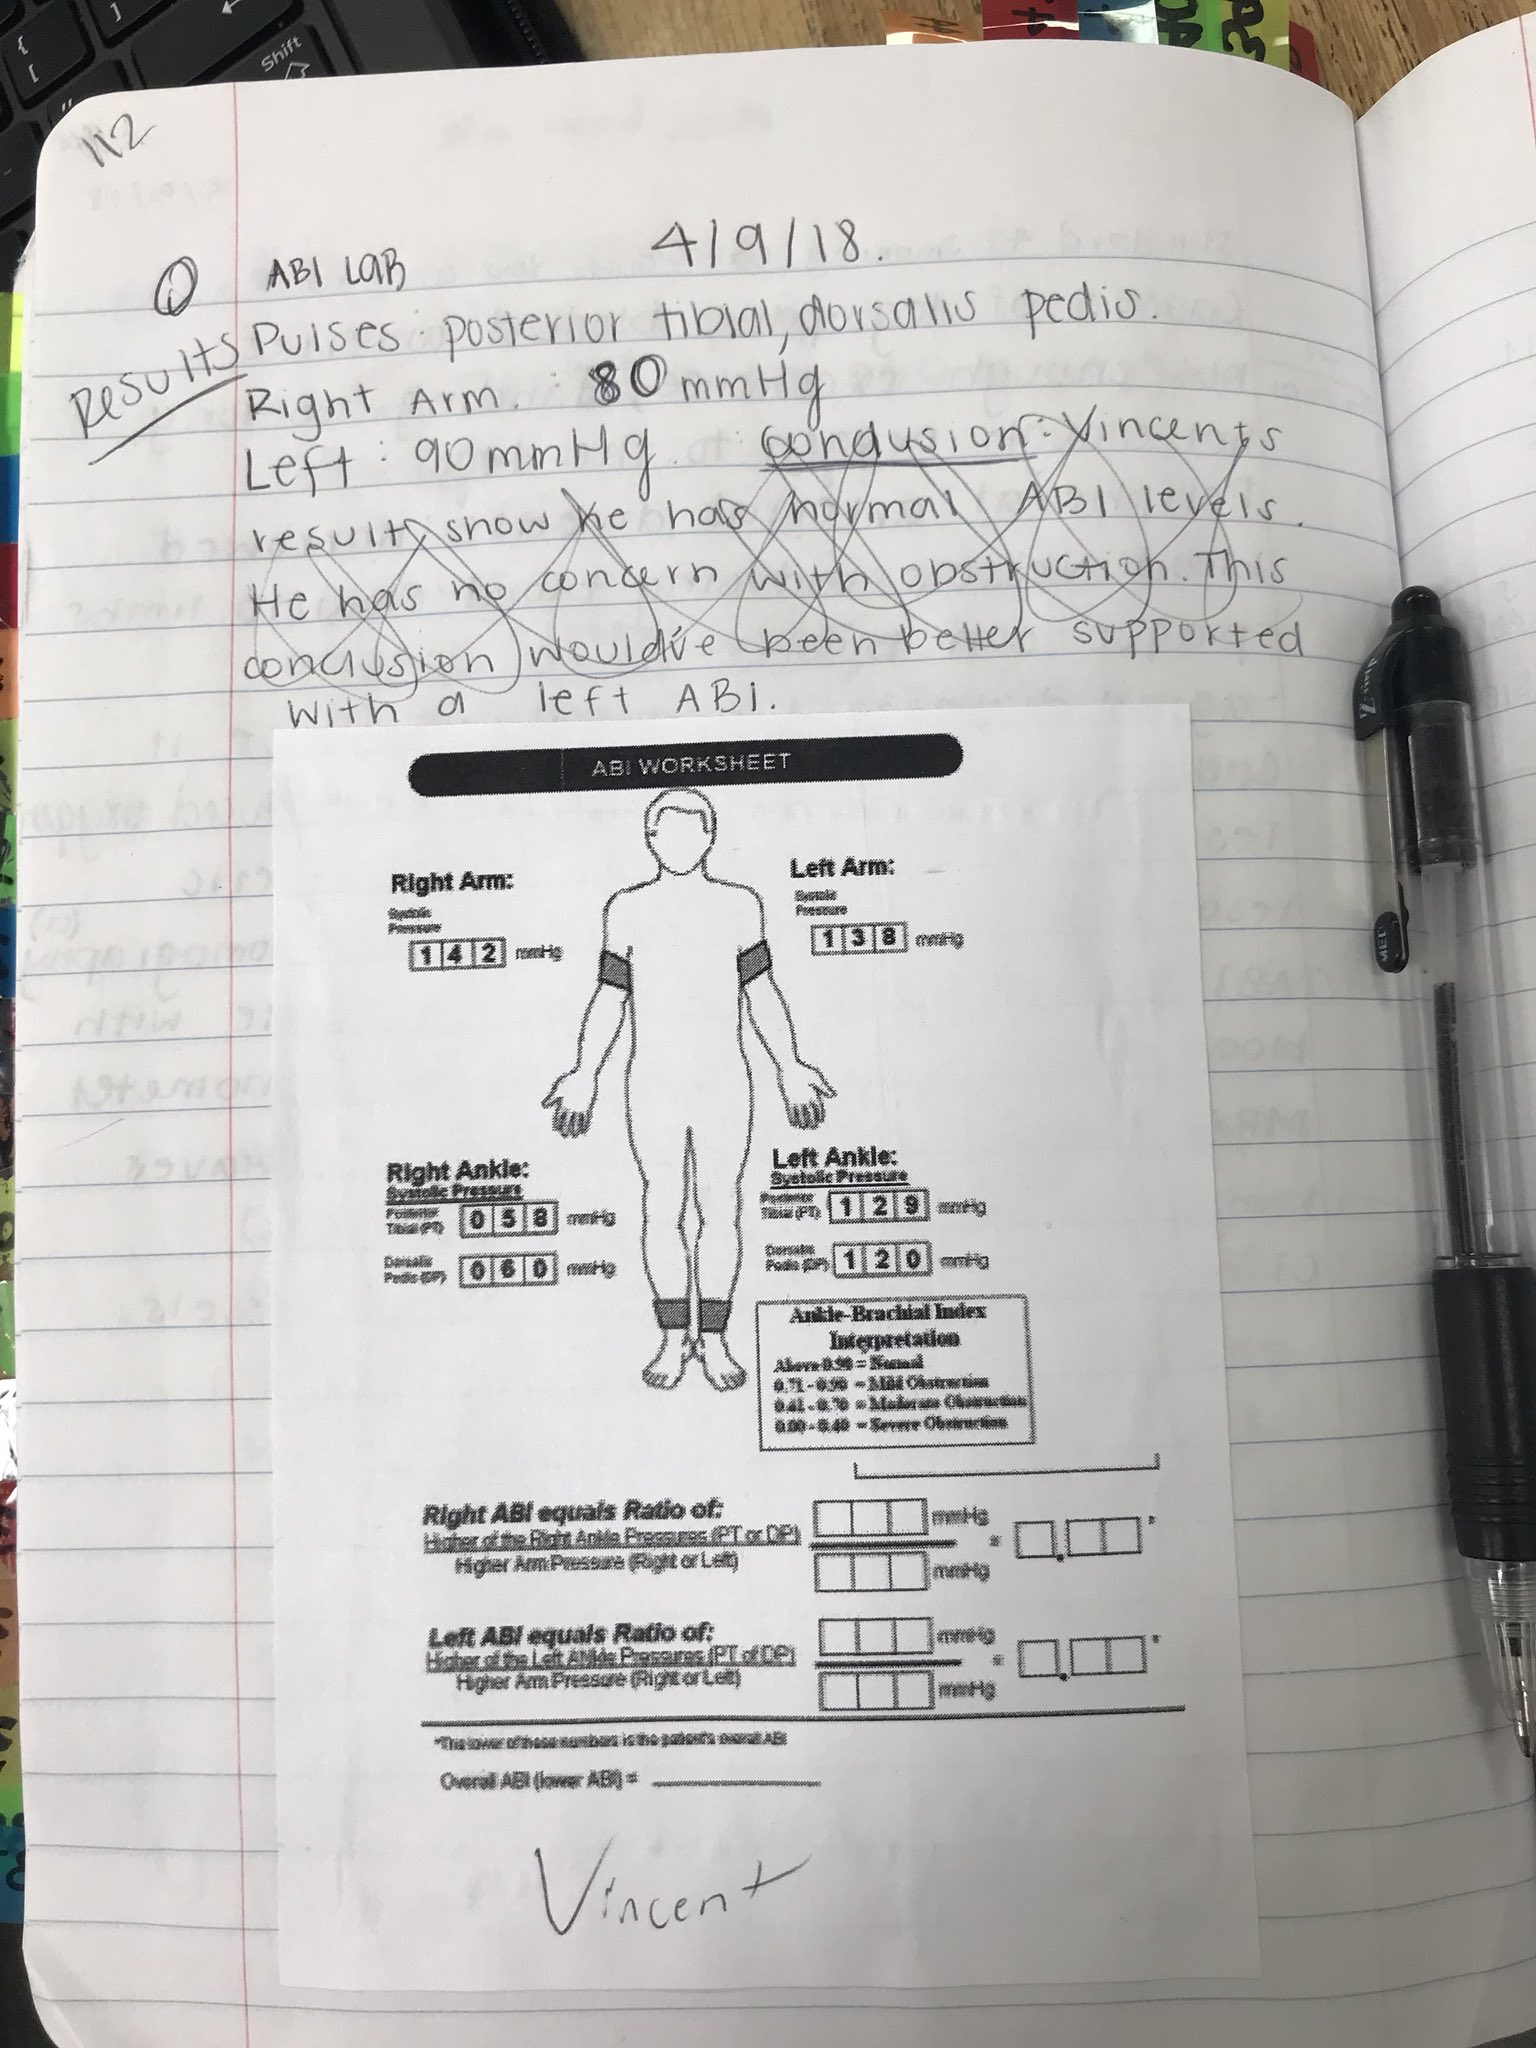 Shift
112
ABI LAB 4/9/18.
Results Pulses: posterior tibial, dorsalis pedis.
Right Arm. : 80 mmHg
Left : 90 mmHg. Conclusion: Vincents
results show he has normal ABI levels.
He has no concern with obstruction. This
conclusion would've been better supported
with a left ABI.
ABI WORKSHEET
Right Arm:
Systolic
Pressure
142 mmHg
Left Arm:
Systolic
Pressure
138 mmHg
Right Ankle:
Systolic Pressure
Posterior
Tibial (PT) 058 mmHg
Dorsalis
Pedis (DP) 060 mmHg
Left Ankle:
Systolic Pressure
Posterior
Tibial (PT) 129 mmHg
Dorsalis
Pedis (DP) 120 mmHg
Ankle-Brachial Index
Interpretation
Above 0.90 = Normal
0.71 - 0.90 = Mild Obstruction
0.41 - 0.70 = Moderate Obstruction
0.00 - 0.40 = Severe Obstruction
Right ABI equals Ratio of:
Higher of the Right Ankle Pressures (PT or DP) mmHg
Higher Arm Pressure (Right or Left) mmHg
= . *
Left ABI equals Ratio of:
Higher of the Left Ankle Pressures (PT of DP) mmHg
Higher Arm Pressure (Right or Left) mmHg
= . *
*The lower of these numbers is the patient's overall ABI
Overall ABI (lower ABI) =
Vincent